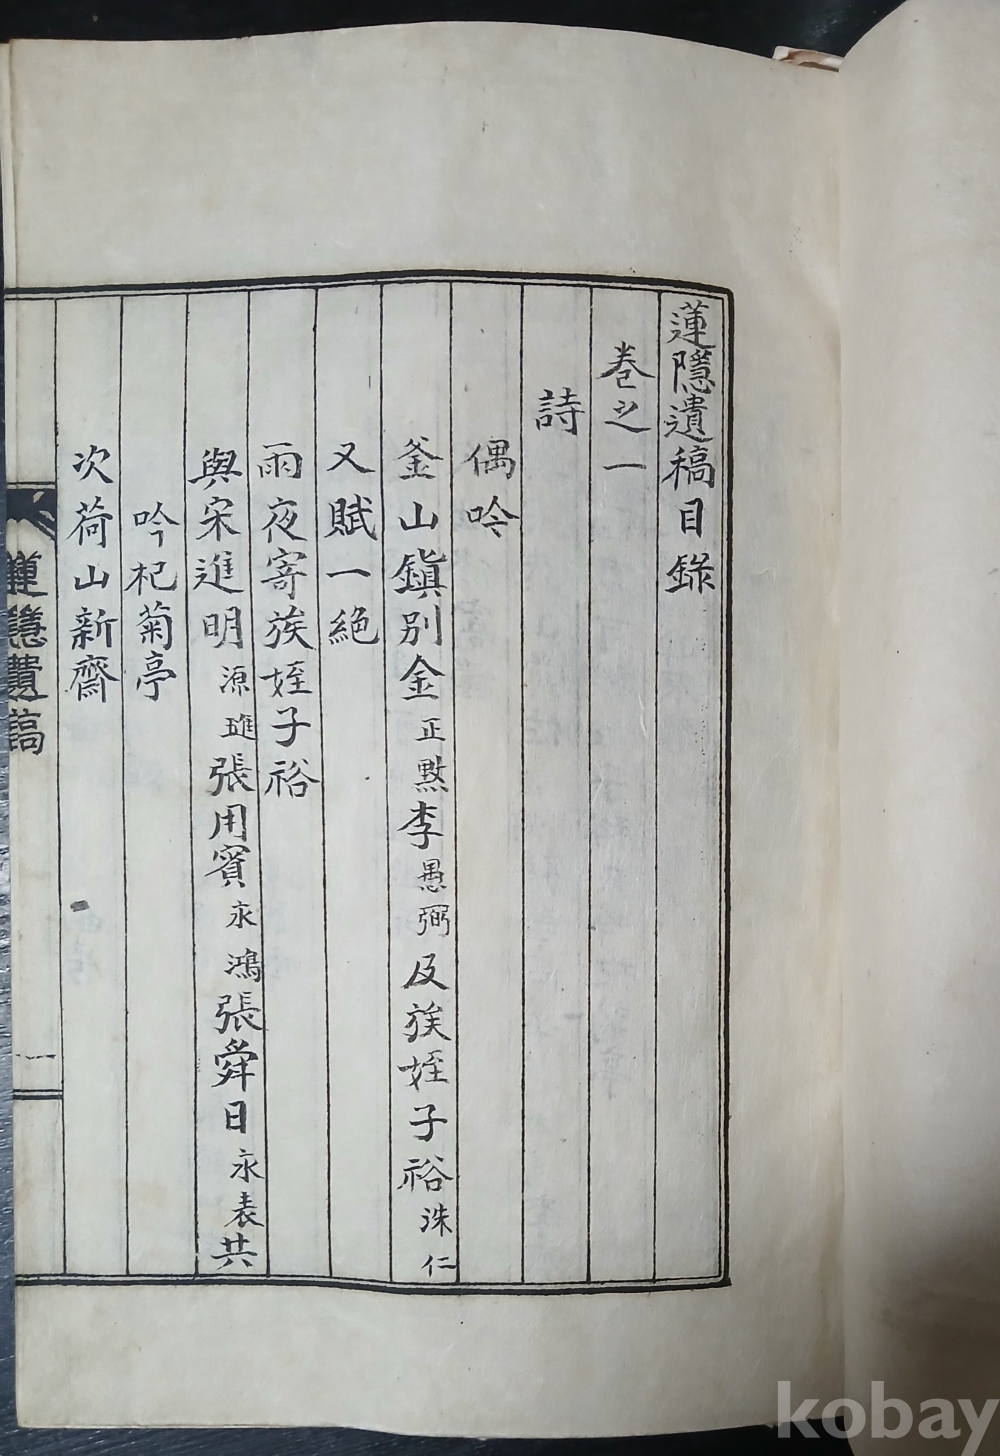 蓮隱遺稿目錄
卷之一
詩
偶吟
釜山鎭別金正黙李愚弼及族姪子裕洙仁
又賦一絶
雨夜寄族姪子裕
與宋進明源璀張用賓永鴻張舜日永表共
吟杞菊亭
次荷山新齋
蓮隱遺稿
一
kobay